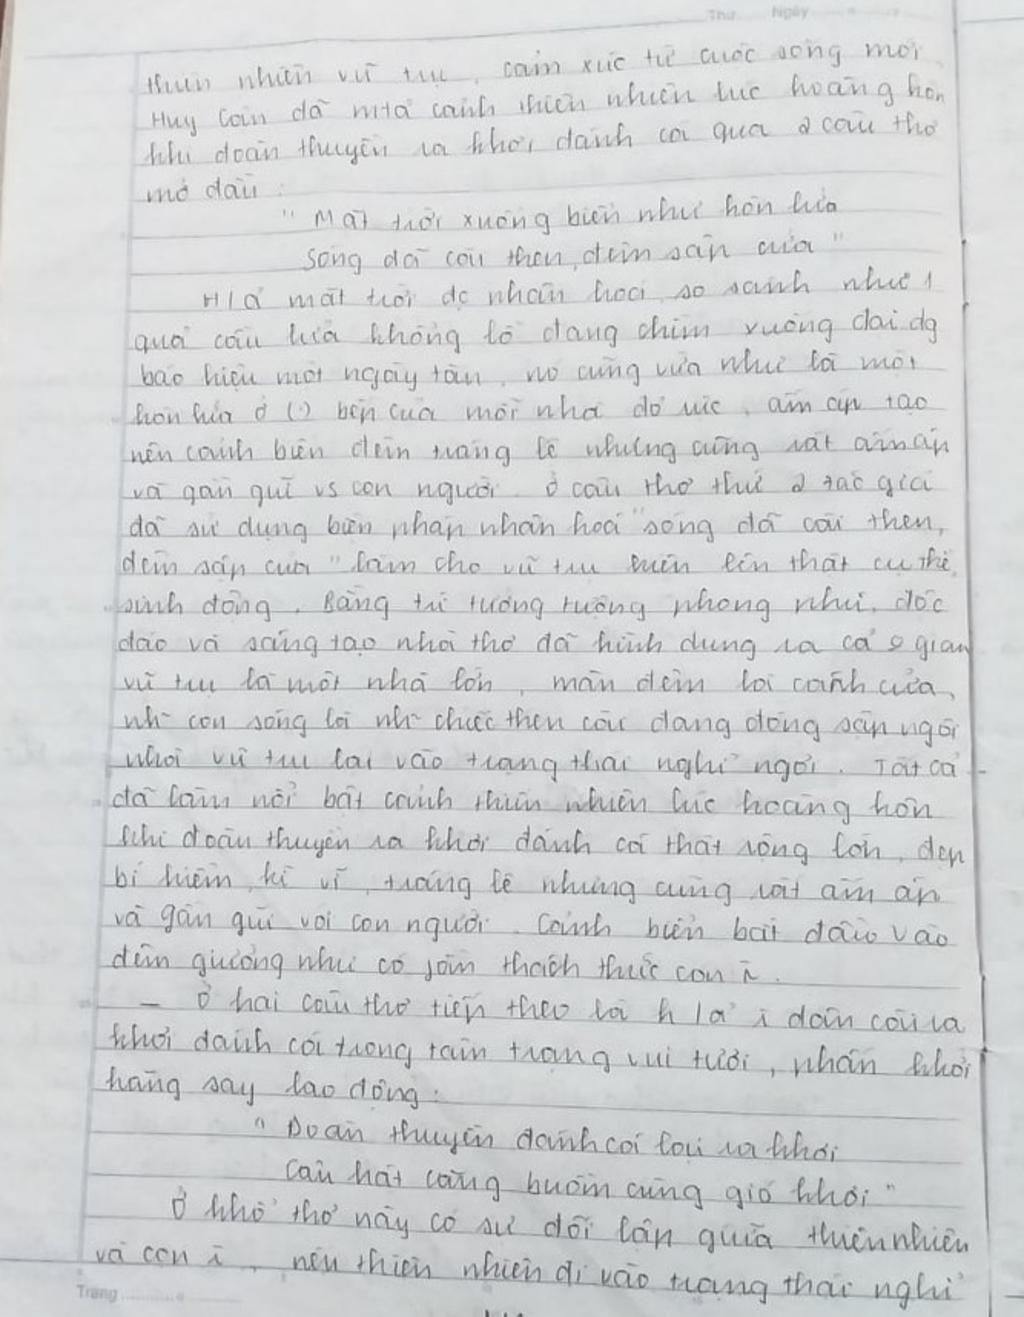 Thứ Ngày
thiên nhiên vũ trụ, cảm xúc từ cuộc sống mới
Huy Cận đã mtả cảnh thiên nhiên lúc hoàng hôn
khi đoàn thuyền ra khơi đánh cá qua 2 câu thơ
mở đầu :
" Mặt trời xuống biển như hòn lửa
Sóng đã cài then, đêm sập cửa "
H/ả mặt trời đc nhân hoá, so sánh như 1
quả cầu lửa khổng lồ đang chìm xuống đại dg
báo hiệu một ngày tàn, nó cũng vừa như là một
hòn lửa ở (.) bếp của mỗi nhà đỏ rực, ấm áp tạo
nên cảnh biển đêm tráng lệ nhưng cũng rất ấm áp
và gần gũi vs con người. Ở câu thơ thứ 2 tác giả
đã sử dụng biện pháp nhân hoá "sóng đã cài then,
đêm sập cửa" làm cho vũ trụ hiện lên thật cụ thể,
sinh động. Bằng trí tưởng tượng phong phú, độc
đáo và sáng tạo nhà thơ đã hình dung ra cả o gian
vũ trụ là một nhà lớn, màn đêm là cánh cửa,
nh~ con sóng là nh~ chiếc then cài đang đóng sập ngôi
nhà vũ trụ lại vào trạng thái nghỉ ngơi. Tất cả
đã làm nổi bật cảnh thiên nhiên lúc hoàng hôn
khi đoàn thuyền ra khơi đánh cá thật rộng lớn, đẹp
bí hiểm, kì vĩ, tráng lệ nhưng cũng rất ấm áp
và gần gũi với con người. Cảnh biển bắt đầu vào
đêm giường như có thách thức con ~.
- Ở hai câu thơ tiếp theo là h/ả đoàn ra
khơi đánh cá trong tâm trạng vui tươi, phấn khởi
hăng say lao động :
" Đoàn thuyền đánh cá lại ra khơi
Câu hát căng buồm cùng gió khơi "
Ở khổ thơ này có sự đối lập giữa thiên nhiên
và con, nếu thiên nhiên đi vào trạng thái nghỉ
Trang